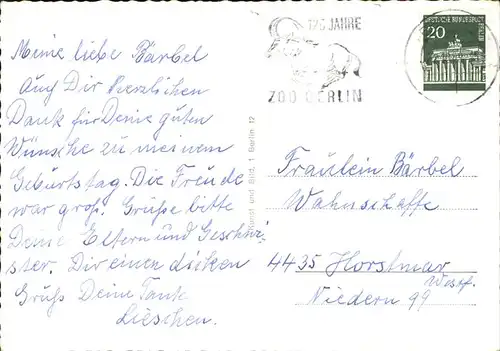 Meine liebe Bärbel
Auf Dir herzlichen
Dank für Deine guten
Wünsche zu meinem
Geburtstag. Die Freude
war groß. Grüße bitte
Deine Eltern und Geschwi-
ster. Dir einen dicken
Gruß Deine Tante
Lieschen.
125 JAHRE
ZOO BERLIN
DEUTSCHE BUNDESPOST
BERLIN
20
Kunst und Bild, 1 Berlin 12
Fräulein Bärbel
Wahnschaffe
4435 Horstmar
Westf.
Niedern 99